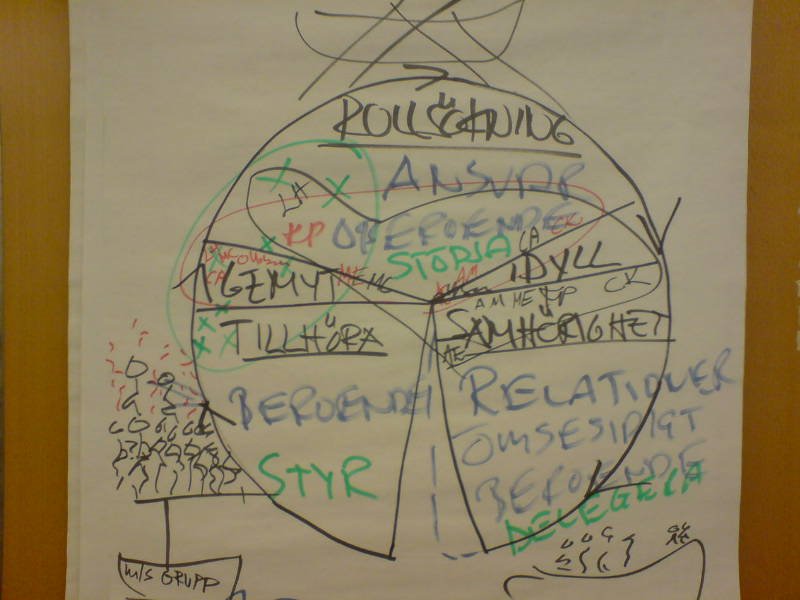 ROLLSÖKNING
ANSVAR
LH
KP OBEROENDE CK
STÖDJA CA
GEMYT ME MG
IDYLL
AM HE KP CK
TILLHÖRA
SAMHÖRIGHET
AE
BEROENDE
RELATIONER
ÖMSESIDIGT
BEROENDE
STYR
DELEGERA
M/S GRUPP